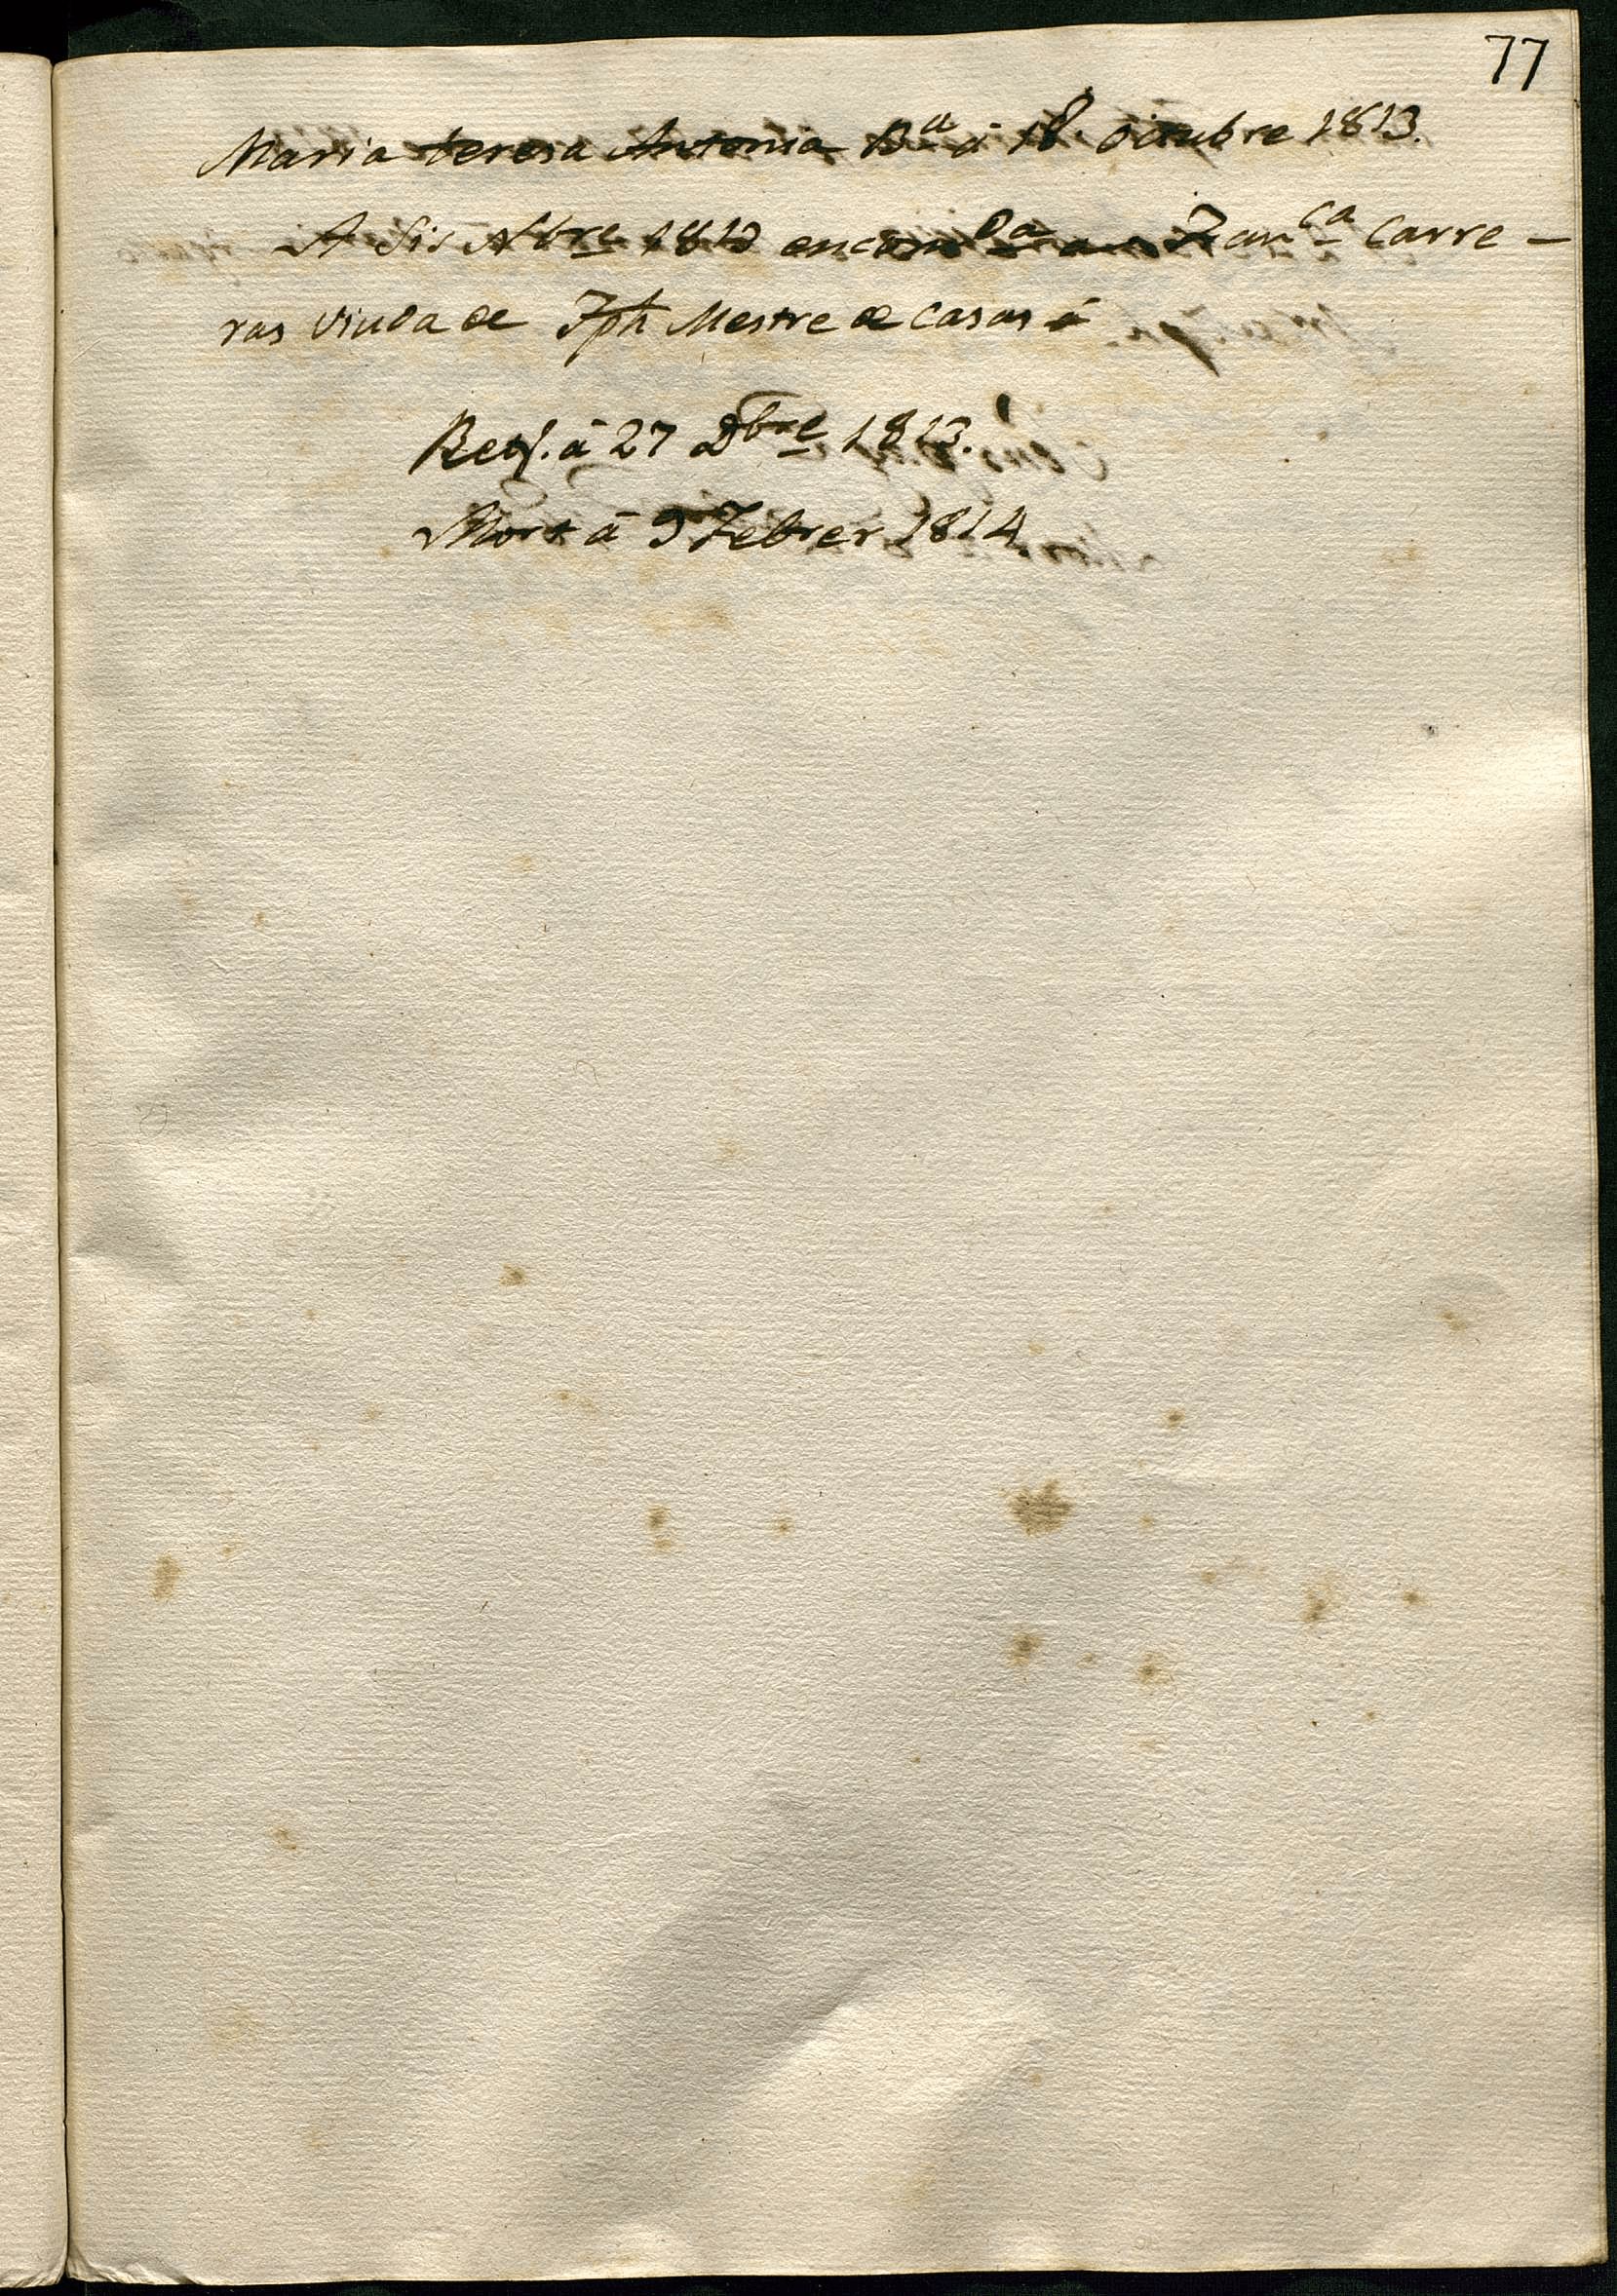 77
Maria teresa Antonia Bª á 18 octubre 1813.
A Sis Nbre 1813 encomda a Franca Carre-
ras viuda de Jph Mestre de Casas á
á 27 Dbre 1813.
Mort á 9 Febrer 1814